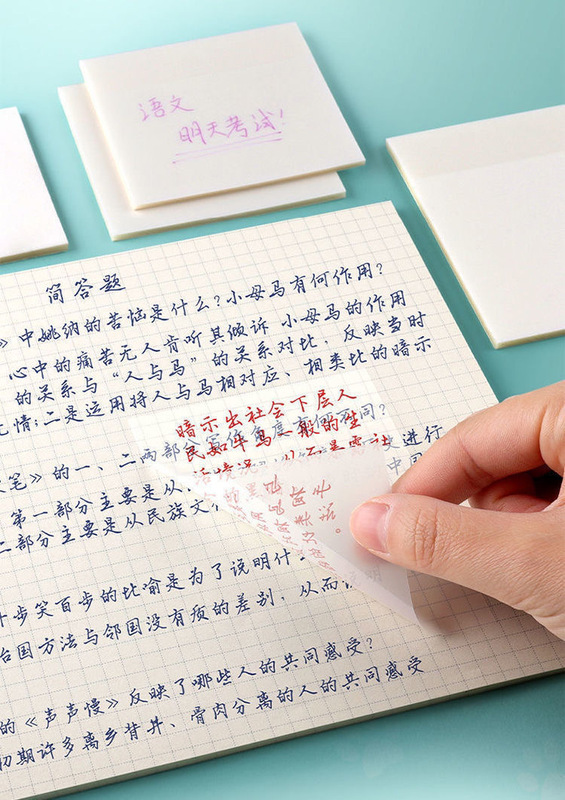 语文
明天考试!
简答题
》中姚纳的苦恼是什么?小母马有何作用?
心中的痛苦无人肯听其倾诉 小母马的作用
的关系与“人与马”的关系对比,反映当时
无情;二是运用将人与马相对应、相类比的暗示
暗示出社会下层人
民如牛马一般的生
笔》的一、二两部
进行
第一部分主要是从
二部分主要是从民族文
步笑百步的比喻是为了说明什
治国方法与邻国没有质的差别,从而
的《声声慢》反映了哪些人的共同感受?
初期许多离乡背井、骨肉分离的人的共同感受